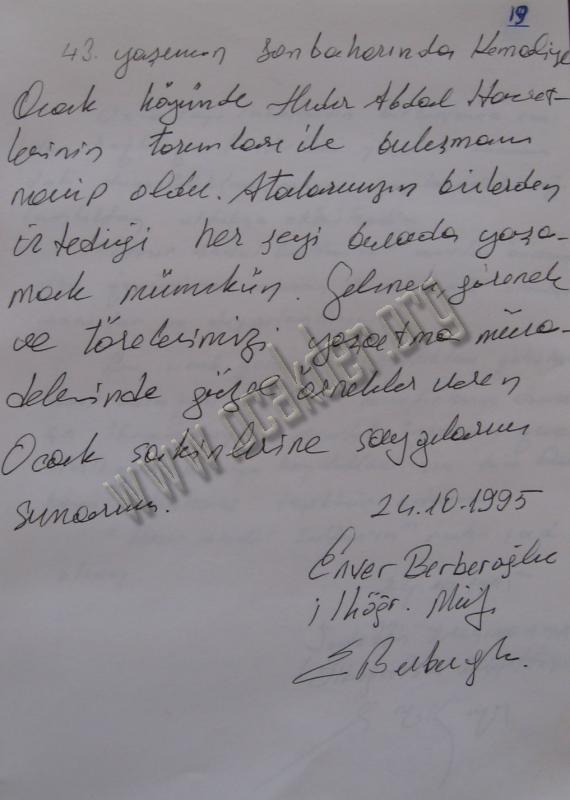 19
43. yaşımın sonbaharında Kemaliye
Ocak köyünde Hıdır Abdal Hazret-
lerinin torunları ile buluşmam
nasip oldu. Atalarımızın bizlerden
istediği her şeyi burada yaşa-
mak mümkün. Gelenek, görenek
ve törelerimizi yaşatma müca-
delesinde güzel örnekler veren
Ocak sakinlerine saygılarımı
sunarım.
24.10.1995
Enver Berberoğlu
ilköğr. Müf.
E Berberoğlu
www.ocakder.org